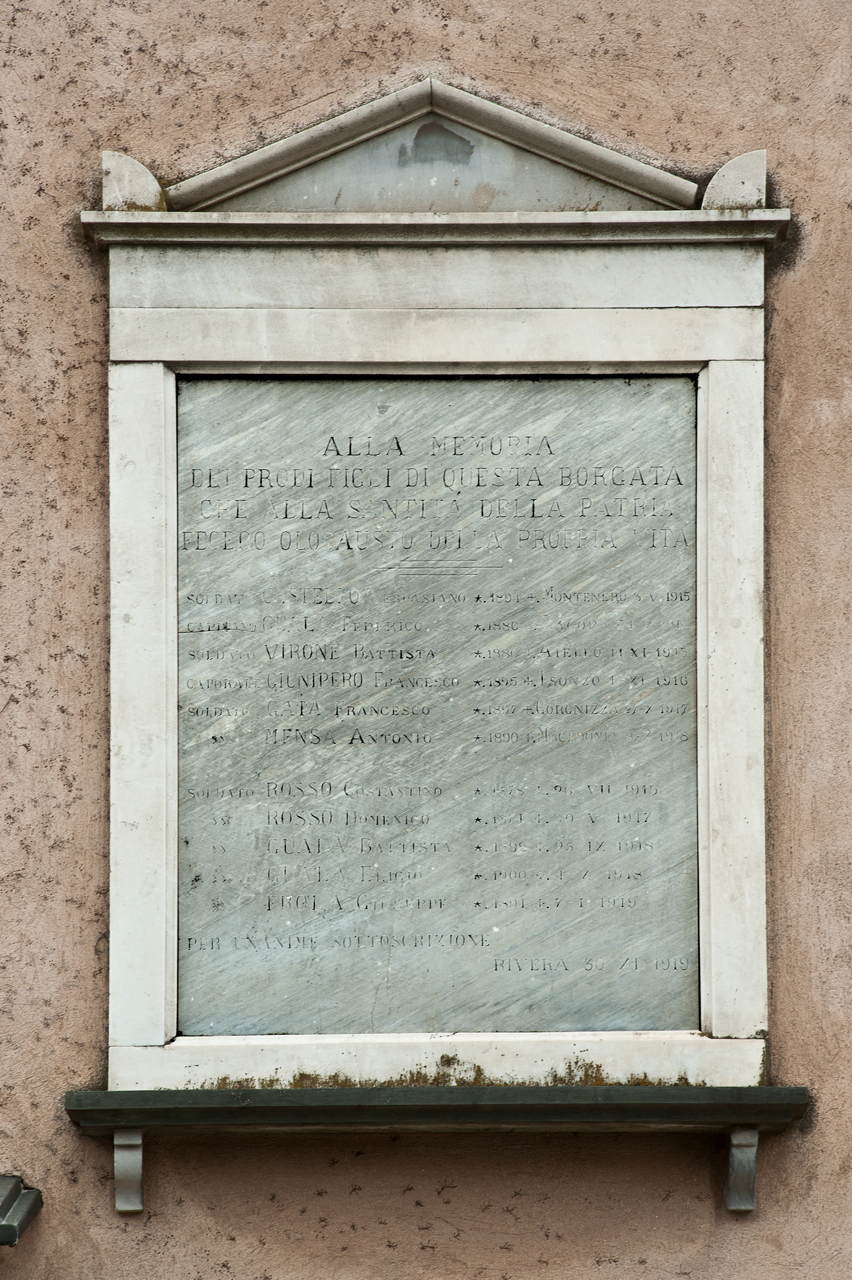 ALLA MEMORIA
DEI PRODI FIGLI DI QUESTA BORGATA
CHE ALLA SANTITÀ DELLA PATRIA
FECERO OLOCAUSTO DELLA PROPRIA VITA
SOLDATO CASTELLO SEBASTIANO ★.1894 ✝.MONTENERO 3 V 1915
CAPITANO GUALA FEDERICO ★.1880
SOLDATO VIRONE BATTISTA ★.1886 ✝.AIELLO 11 XI 1915
CAPORALE GIUNIPERO FRANCESCO ★.1895 ✝.ISONZO 1 XI 1916
SOLDATO GAIA FRANCESCO ★.1897 ✝.GORGNIZZA 27 X 1917
» MENSA ANTONIO ★.1890 1918
SOLDATO ROSSO COSTANTINO ★.1878 ✝.26 VII 1916
» ROSSO DOMENICO V 1917
» GUALA BATTISTA IX 1918
» GUALA ELIGIO ★.1900 X 1918
» GIUSEPPE ★.1891 ✝.7 1 1919
PER UNANIME SOTTOSCRIZIONE
RIVERA 30 XI 1919